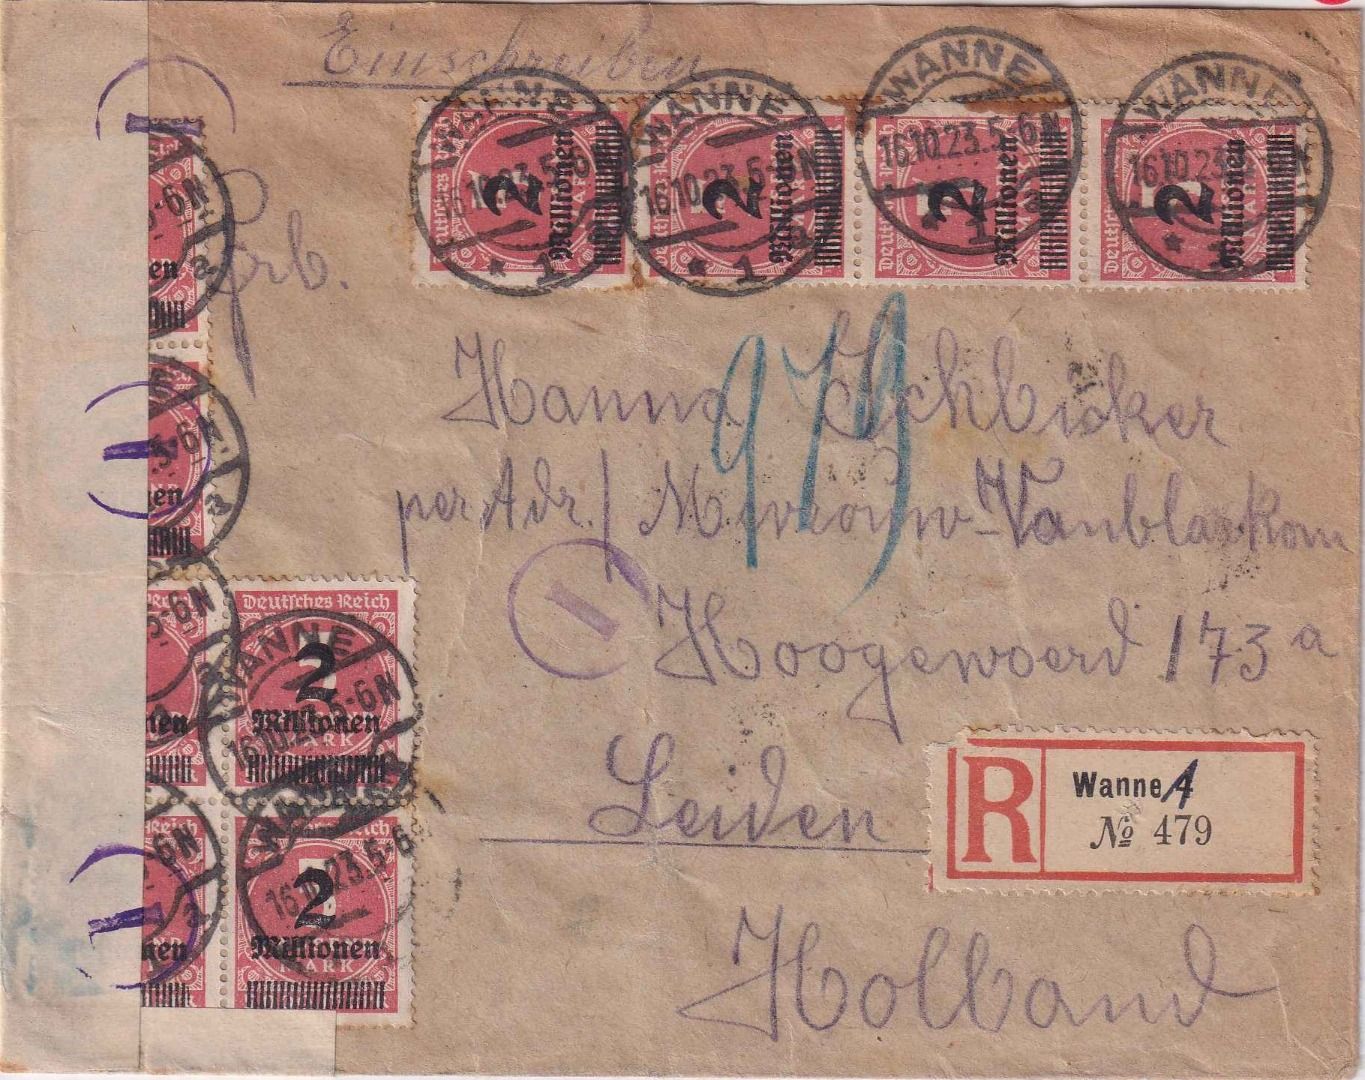 Einschreiben
WANNE
16.10.23.5-6N
* 1 a
2
Millionen
WANNE
16.10.23.5-6N
* 1 a
2
Millionen
WANNE
16.10.23.5-6N
* 1 a
2
Millionen
WANNE
16.10.23.5-6N
* 1 a
2
Millionen
979
Hanna Schlicker
per Adr./ Mevrouw-Vanblarkom
I
Hoogewoerd 173 a
Leiden
Holland
R
Wanne A
№ 479
Deutsches Reich
2
Millionen
MARK
WANNE
16.10.23.5-6N
2
Millionen
MARK
WANNE
16.10.23.5-6